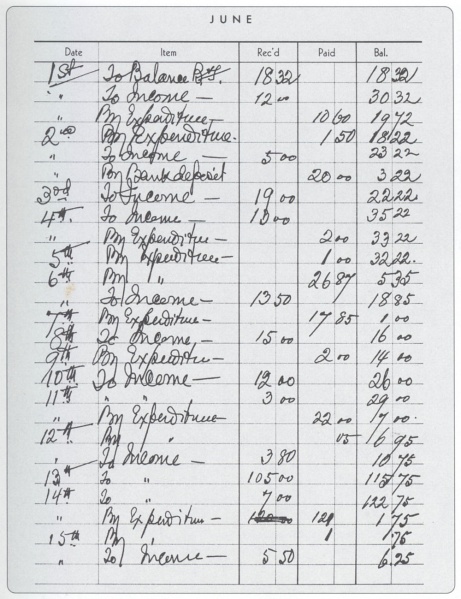 JUNE
Date Item Rec'd Paid Bal.
1st To Balance B/F. 18 32 18 32
" To Income — 12 00 30 32
" By Expenditure — 10 60 19 72
2nd By Expenditure. 1 50 18 22
" To Income — 5 00 23 22
" By Bank deposit 20 00 3 22
3rd To Income — 19 00 22 22
4th. To Income — 13 00 35 22
" By Expenditure — 2 00 33 22
5th By Expenditure — 1 00 32 22
6th By " 26 87 5 35
" To Income — 13 50 18 85
7th By Expenditure — 17 85 1 00
8th To Income, — 15 00 16 00
9th By Expenditure — 2 00 14 00
10th To Income — 12 00 26 00
11th " " — 3 00 29 00
" By Expenditure 22 00 7 00
12th By " 05 6 95
" To Income — 3 80 10 75
13th To " 105 00 115 75
14th To " 7 00 122 75
" By Expenditure — 121 1 75
15th By 1 75
" To Income — 5 50 6.25